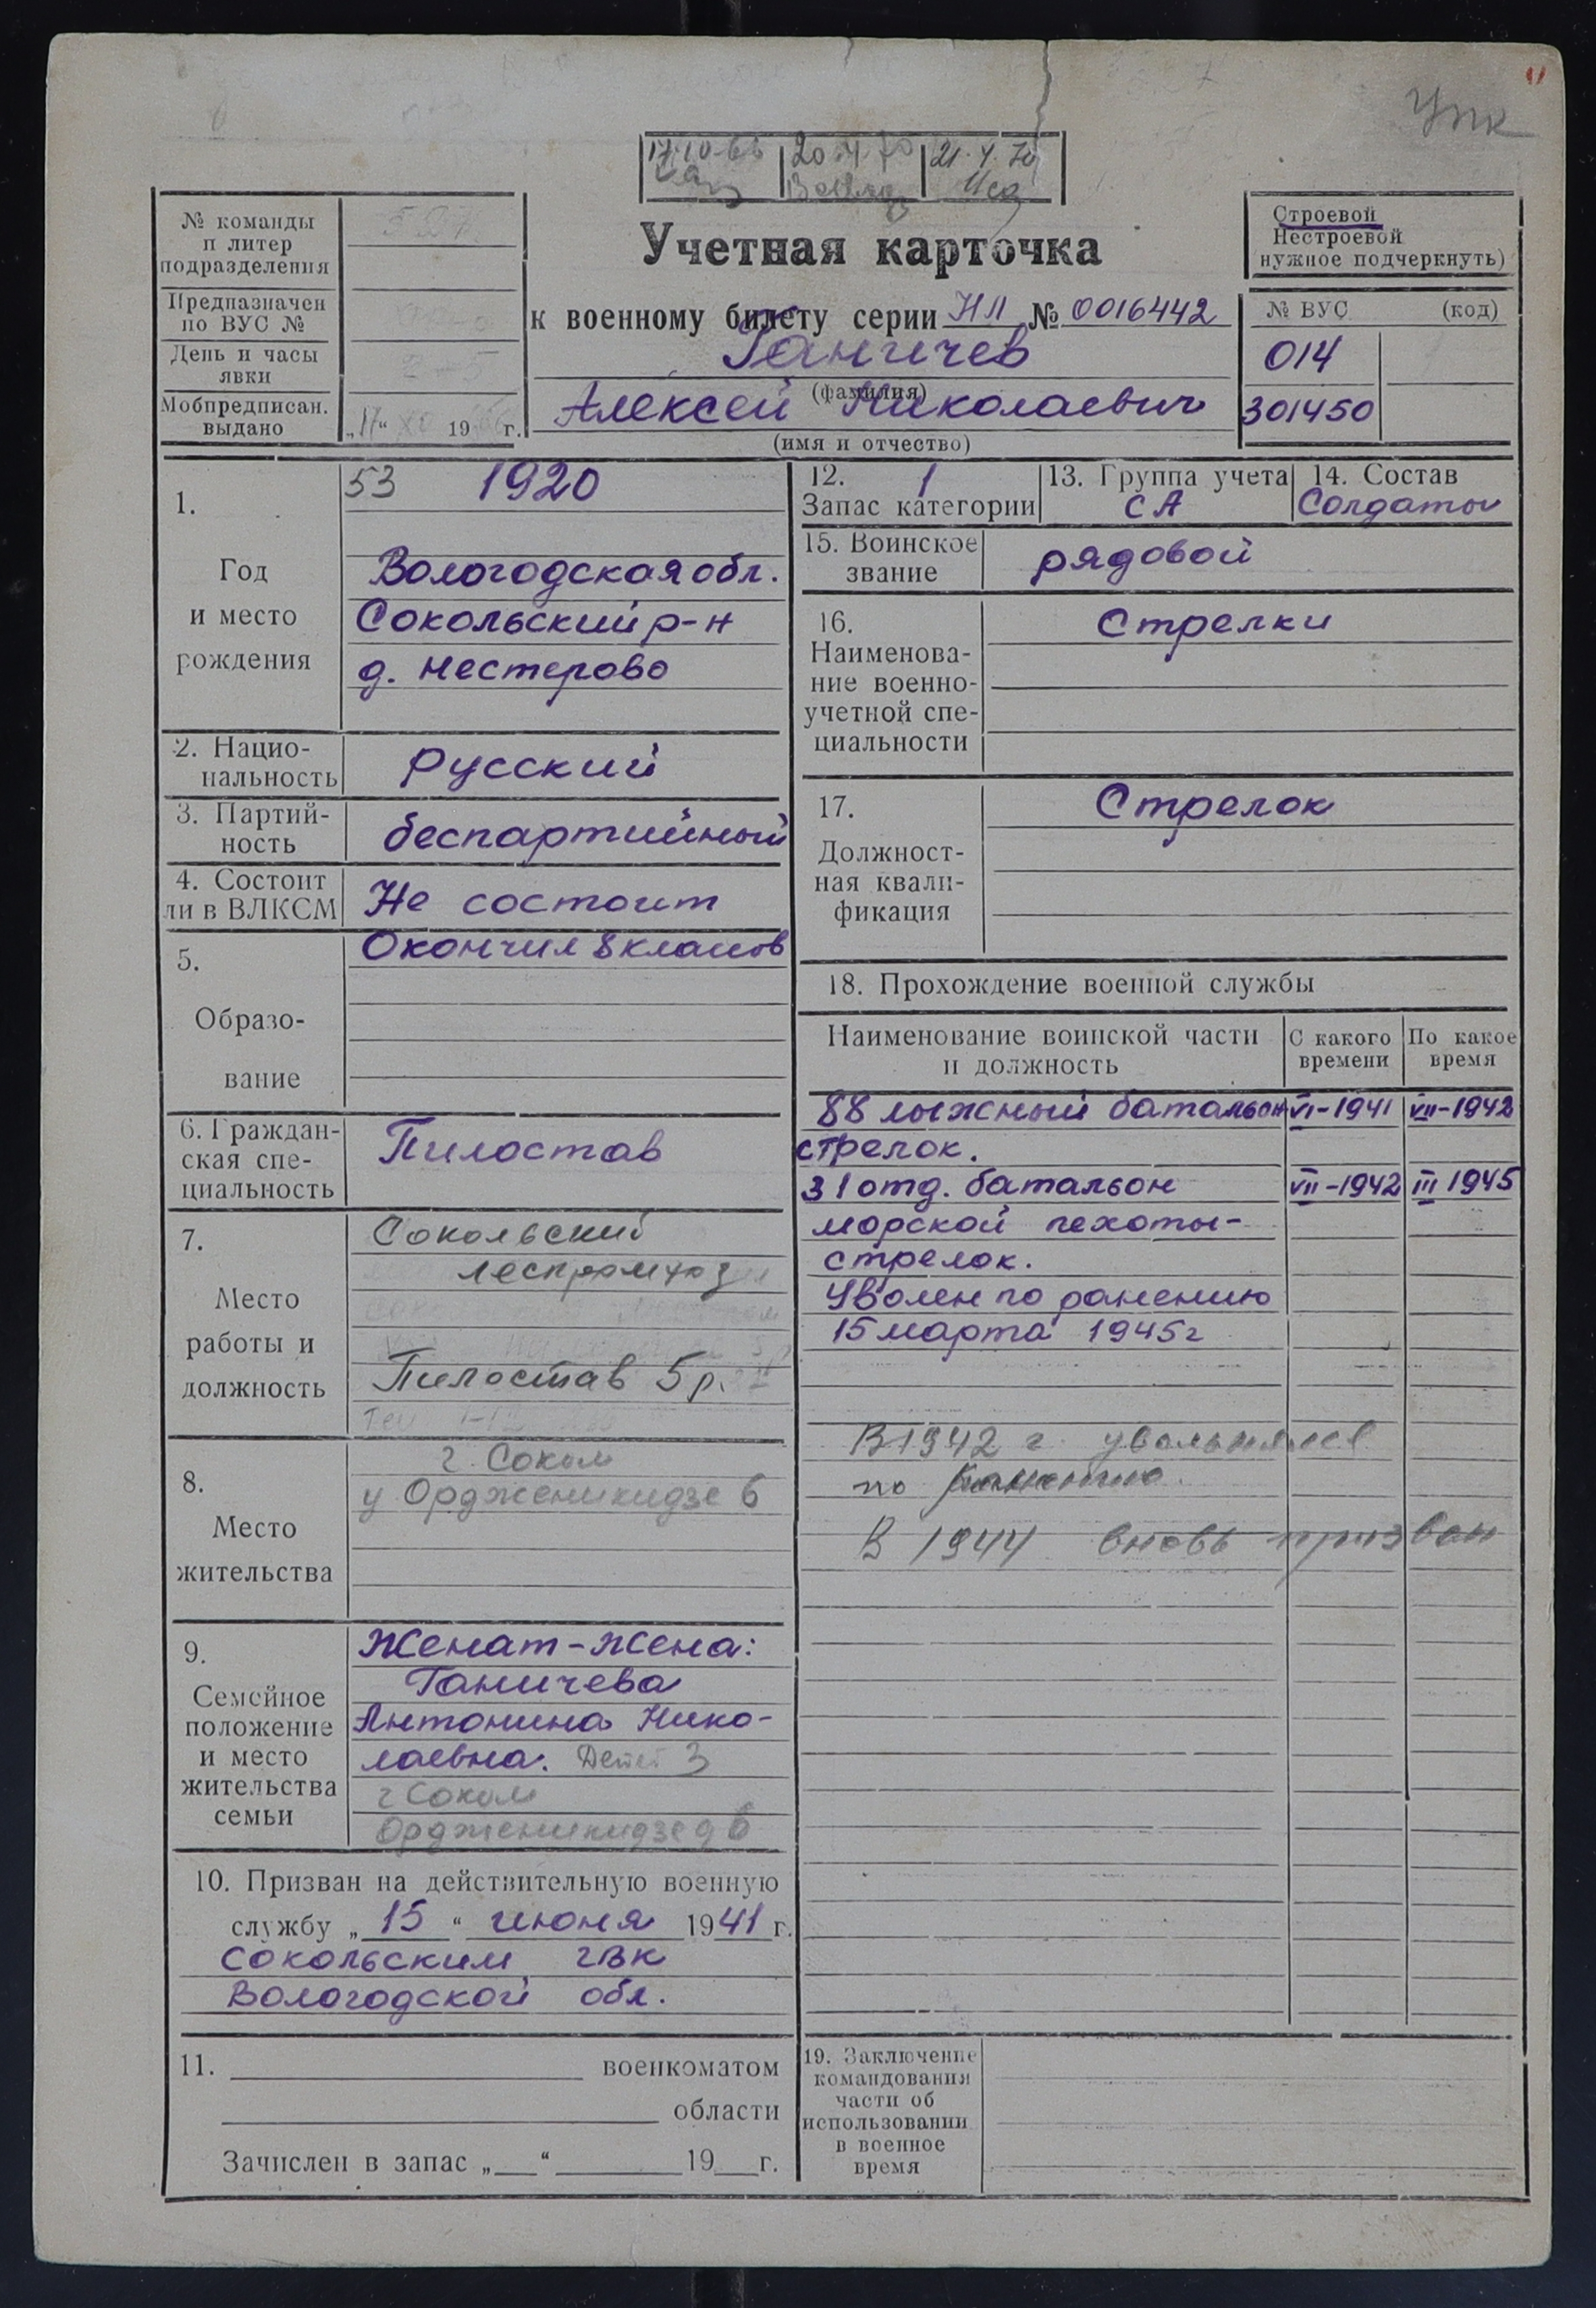 Упк
17.10.66 20.4.70 21.4.70
№ команды
и литер
подразделения
Предназначен
по ВУС №
День и часы
явки
Мобпредписан.
выдано
„17“ 19 г.
Учетная карточка
к военному билету серии НЛ № 0016442
Ганичев
(фамилия)
Алексей Николаевич
(имя и отчество)
Строевой
Нестроевой
нужное подчеркнуть)
№ ВУС (код)
014
301450
1.
Год
и место
рождения
53 1920
Вологодская обл.
Сокольский р-н
д. Нестерово
2. Нацио-
нальность
русский
3. Партий-
ность
беспартийный
4. Состоит
ли в ВЛКСМ
Не состоит
5.
Образо-
вание
Окончил 8 классов
6. Граждан-
ская спе-
циальность
Пилостав
7.
Место
работы и
должность
Сокольский
леспромхоз
Пилостав 5 р.
8.
Место
жительства
г. Сокол
у Ордженикидзе 6
9.
Семейное
положение
и место
жительства
семьи
Женат - жена:
Ганичева
Антонина Нико-
лаевна. Детей 3
г Сокол
Ордженикидзе д 6
10. Призван на действительную военную
службу „15“ июня 1941 г.
Сокольским ГВК
Вологодской обл.
11. военкоматом
области
Зачислен в запас „ “ 19 г.
12. 1
Запас категории
13. Группа учета
СА
14. Состав
Солдаты
15. Воинское
звание
рядовой
16.
Наименова-
ние военно-
учетной спе-
циальности
Стрелки
17.
Должност-
ная квали-
фикация
Стрелок
18. Прохождение военной службы
Наименование воинской части
и должность
С какого
времени
По какое
время
88 лыжный батальон VI-1941 VII-1942
стрелок.
31 отд. батальон VII-1942 III 1945
морской пехоты-
стрелок.
Уволен по ранению
15 марта 1945 г
В 1942 г. увольнялся
по ранению.
В 1944 вновь призван
19. Заключение
командования
части об
использовании
в военное
время